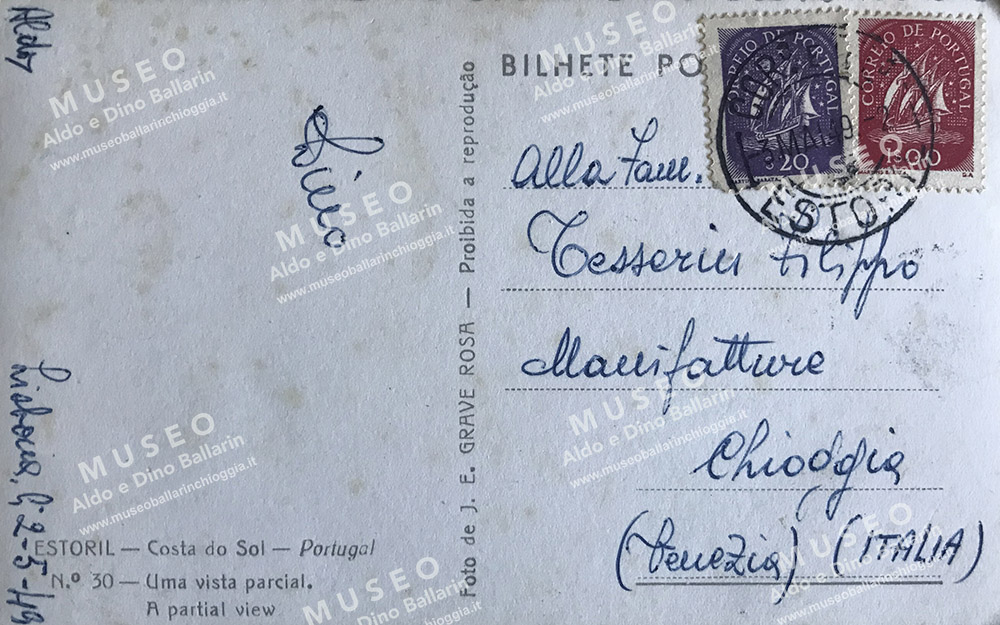 Aldo
Dino
Lisbona, li 2-5-49
ESTORIL — Costa do Sol — Portugal
N.º 30 — Uma vista parcial.
A partial view
Foto de J. E. GRAVE ROSA — Proibida a reprodução
BILHETE PO
CORREIO DE PORTUGAL
$20
CORREIO DE PORTUGAL
1$00
MAI
ESTO
Alla Fam.
Tesserin Filippo
Manifatture
Chioggia
(Venezia) (ITALIA)
MUSEO
Aldo e Dino Ballarin
www.museoballarinchioggia.it
MUSEO
Aldo e Dino Ballarin
www.museoballarinchioggia.it
MUSEO
Aldo e Dino Ballarin
www.museoballarinchioggia.it
MUSEO
Aldo e Dino Ballarin
www.museoballarinchioggia.it
MUSEO
Aldo e Dino Ballarin
www.museoballarinchioggia.it
MUSEO
Aldo e Dino Ballarin
www.museoballarinchioggia.it
MUSEO
Aldo e Dino Ballarin
www.museoballarinchioggia.it
MUSEO
Aldo e Dino Ballarin
www.museoballarinchioggia.it